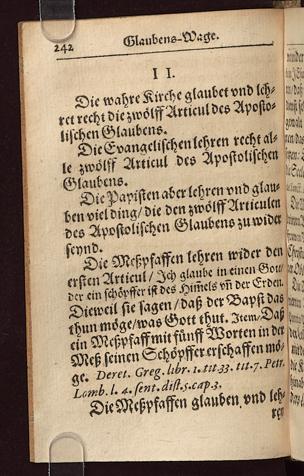 242 Glaubens-Wage.
II.
Die wahre Kirche glaubet vnd leh-
ret recht die zwölff Articul des Aposto-
lischen Glaubens.
Die Evangelischen lehren recht al-
le zwölff Articul des Apostolischen
Glaubens.
Die Papisten aber lehren vnd glau-
ben viel ding/ die den zwölff Articulen
des Apostolischen Glaubens zu wider
seynd.
Die Meßpfaffen lehren wider den
ersten Articul/ Ich glaube in einen Gott/
der ein schöpffer ist des Him̃els vñ der Erden.
Dieweil sie sagen/ daß der Bapst das
thun möge/ was Gott thut. Item/ Daß
ein Meßpfaff mit fünff Worten in der
Meß seinen Schöpffer erschaffen mö-
ge. Deret. Greg. libr. 1. tit. 33. tit. 7. Petr.
Lomb. l. 4. sent. dist. 5. cap. 3.
Die Meßpfaffen glauben vnd leh-
ren